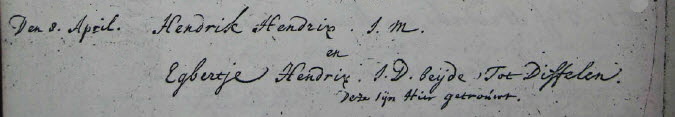 Den 8. April. Hendrik Hendrix. J. M.
en
Egbertje Hendrix. J. D. beÿde Tot Diffelen.
deze sÿn Hier getrouwt.